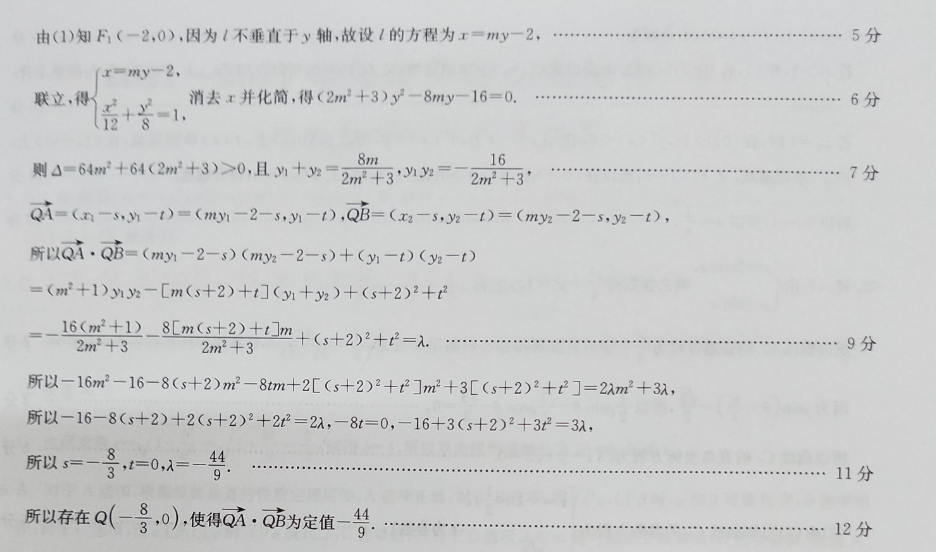 由(1)知 F₁(-2,0),因为 l 不垂直于 y 轴,故设 l 的方程为 x=my-2, …… 5分
联立,得{x=my-2, x²/12+y²/8=1, 消去 x 并化简,得(2m²+3)y²-8my-16=0. …… 6分
则 Δ=64m²+64(2m²+3)>0,且 y₁+y₂=8m/(2m²+3),y₁y₂=-16/(2m²+3), …… 7分
QA→=(x₁-s,y₁-t)=(my₁-2-s,y₁-t),QB→=(x₂-s,y₂-t)=(my₂-2-s,y₂-t),
所以QA→·QB→=(my₁-2-s)(my₂-2-s)+(y₁-t)(y₂-t)
=(m²+1)y₁y₂-[m(s+2)+t](y₁+y₂)+(s+2)²+t²
=-16(m²+1)/(2m²+3)-8[m(s+2)+t]m/(2m²+3)+(s+2)²+t²=λ. …… 9分
所以-16m²-16-8(s+2)m²-8tm+2[(s+2)²+t²]m²+3[(s+2)²+t²]=2λm²+3λ,
所以-16-8(s+2)+2(s+2)²+2t²=2λ,-8t=0,-16+3(s+2)²+3t²=3λ,
所以 s=-8/3,t=0,λ=-44/9. …… 11分
所以存在 Q(-8/3,0),使得QA→·QB→为定值-44/9. …… 12分